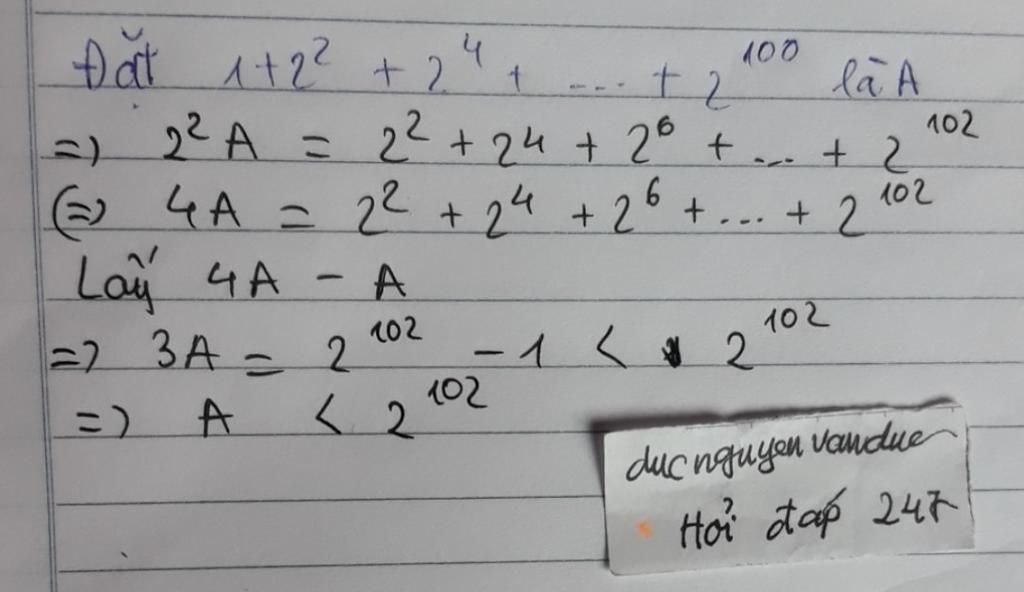 Đặt 1+2² + 2⁴ + .... + 2¹⁰⁰ là A
=) 2²A = 2² + 2⁴ + 2⁶ + ... + 2¹⁰²
(=) 4A = 2² + 2⁴ + 2⁶ + ... + 2¹⁰²
Lấy 4A - A
=) 3A = 2¹⁰² - 1 < 2¹⁰²
=) A < 2¹⁰²
ducnguyenvanduc
Hỏi đáp 247